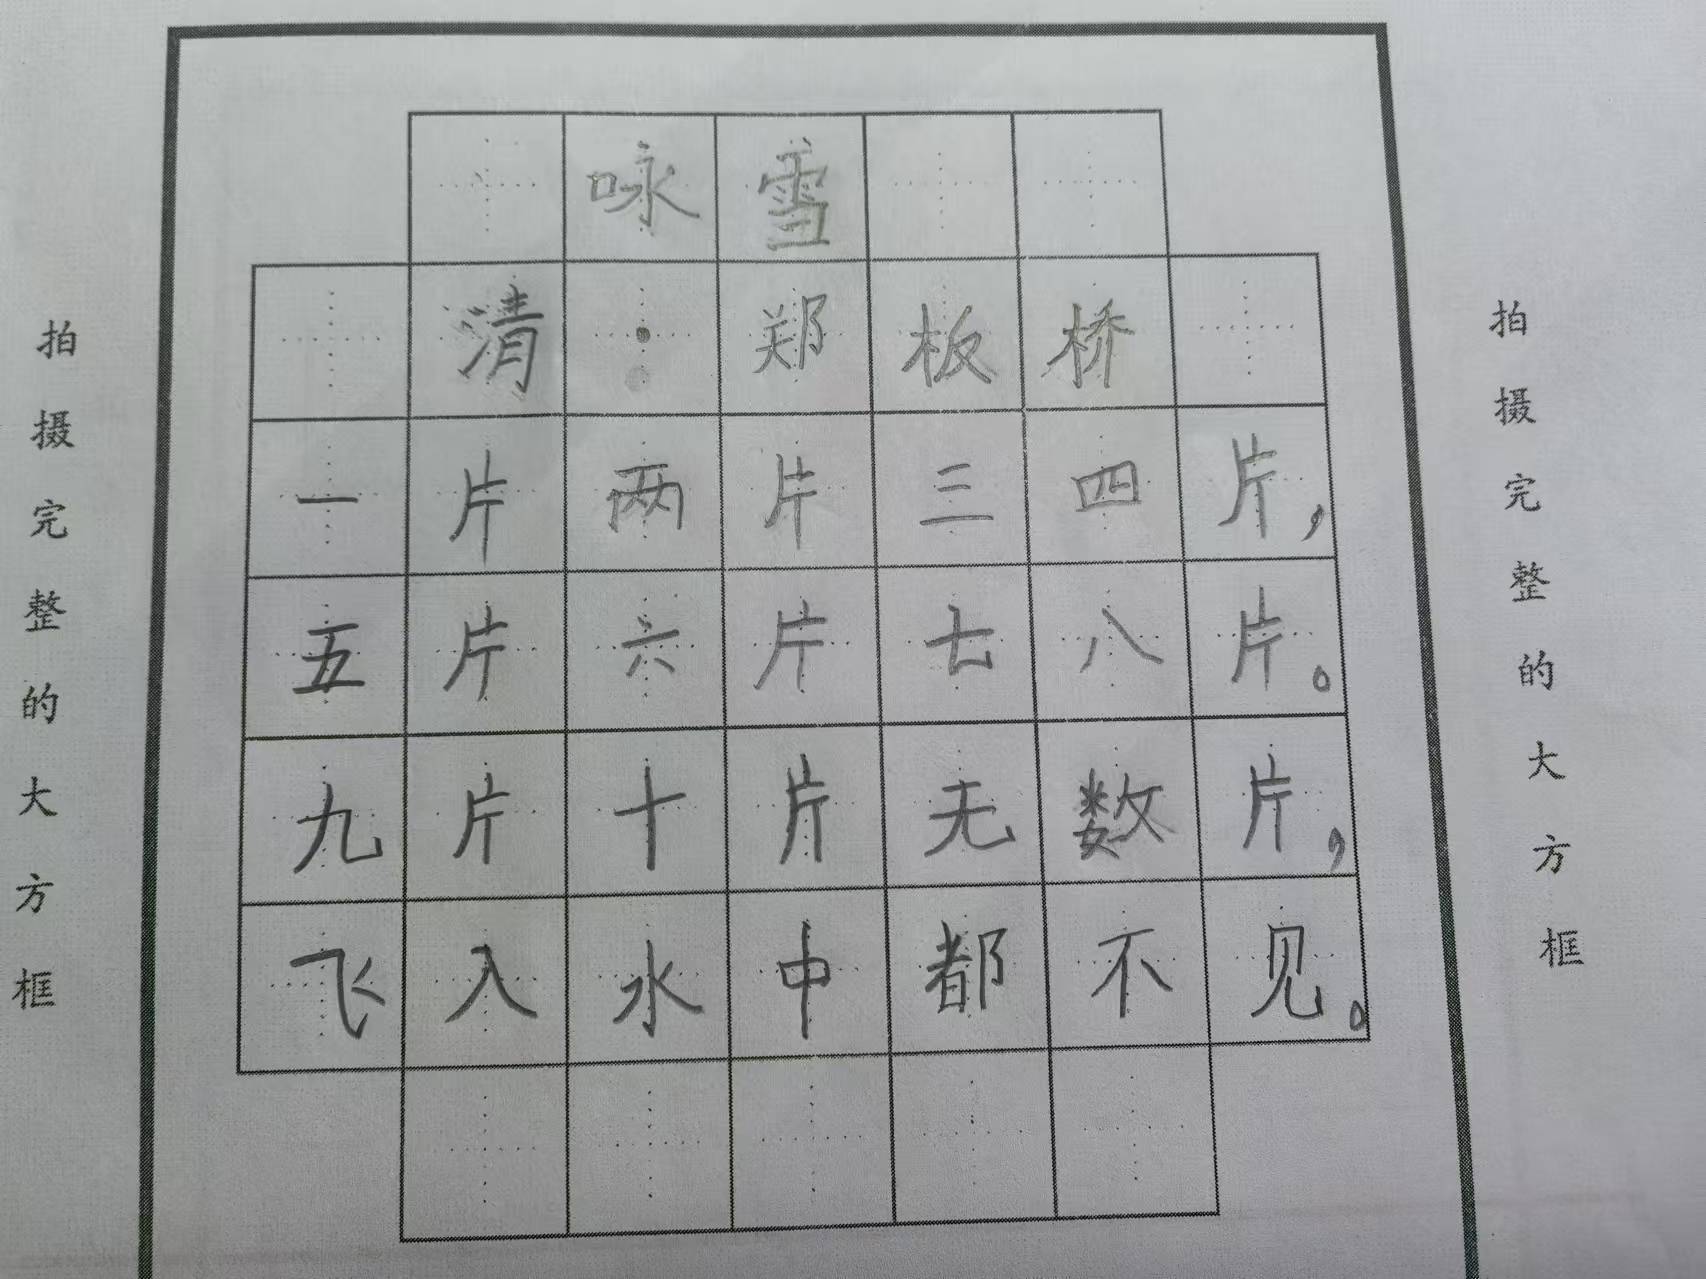 咏雪
清·郑板桥
一片两片三四片，
五片六片七八片。
九片十片无数片，
飞入水中都不见。
拍摄完整的大方框
拍摄完整的大方框